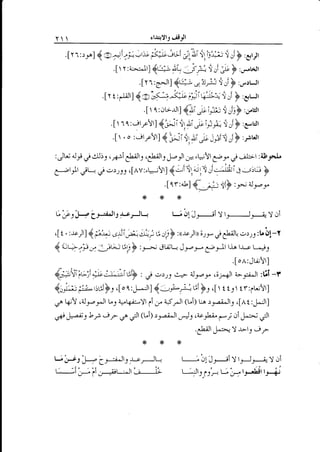 الوقف والابتداء ٢١١
الرابع: ﴿ أن لا تعبدوا إلا الله إني أخاف عليكم عذاب يوم أليم ﴾ [هود: ٢٦].
الخامس: ﴿ على أن لا يشركن بالله ﴾ [الممتحنة: ١٢].
السادس: ﴿ أن لا تشرك بي شيئا ﴾ [الحج: ٢٦].
السابع: ﴿ أن لا يدخلنها اليوم عليكم مسكين ﴾ [القلم: ٢٤].
الثامن: ﴿ وأن لا تعلوا على الله ﴾ [الدخان: ١٩].
التاسع: ﴿ أن لا يقولوا على الله إلا الحق ﴾ [الأعراف: ١٦٩].
العاشر: ﴿ أن لا أقول على الله إلا الحق ﴾ [الأعراف: ١٠٥].
ملاحظة: اختلف في موضع الأنبياء، بين الوصل والقطع، والقطع أشهر، وذلك في قوله تعالى:
﴿ فنادى في الظلمات أن لا إله إلا أنت ﴾ [الأنبياء: ٨٧]، ووردت في باقي المواضع
موصولة نحو: ﴿ ألا تتبعن ﴾ [طه: ٩٣].
* * *
أن لا يقولوا لا أقول إن ما بالرعد والمفتوح صل وعن ما
٢- إن ما: وردت بالقطع في موضع واحد بـ(الرعد): ﴿ وإن ما نرينك بعض الذي نعدهم ﴾ [الرعد: ٤٠]،
وما عدا هذا الموضع موصولة باتفاق نحو: ﴿ وإما تخافن من قوم خيانة ﴾
[الأنفال: ٥٨].
٣- أما: المفتوحة الهمزة، موصولة حيث وردت في: ﴿ أما اشتملت عليه أرحام الأنثيين ﴾
[الأنعام: ١٤٣، ١٤٤]، ﴿ أما يشركون ﴾ [النمل: ٥٩]، ﴿ أماذا كنتم تعملون ﴾
[النمل: ٨٤]، والمقصود بـ(أما) المركبة من أم الاستفهامية وما الموصولة
* * *
بالرعد والمفتوح صل وعن ما نهوا اقطعوا من ما بروم والنسا
خلف المنافقين أم من أسسا